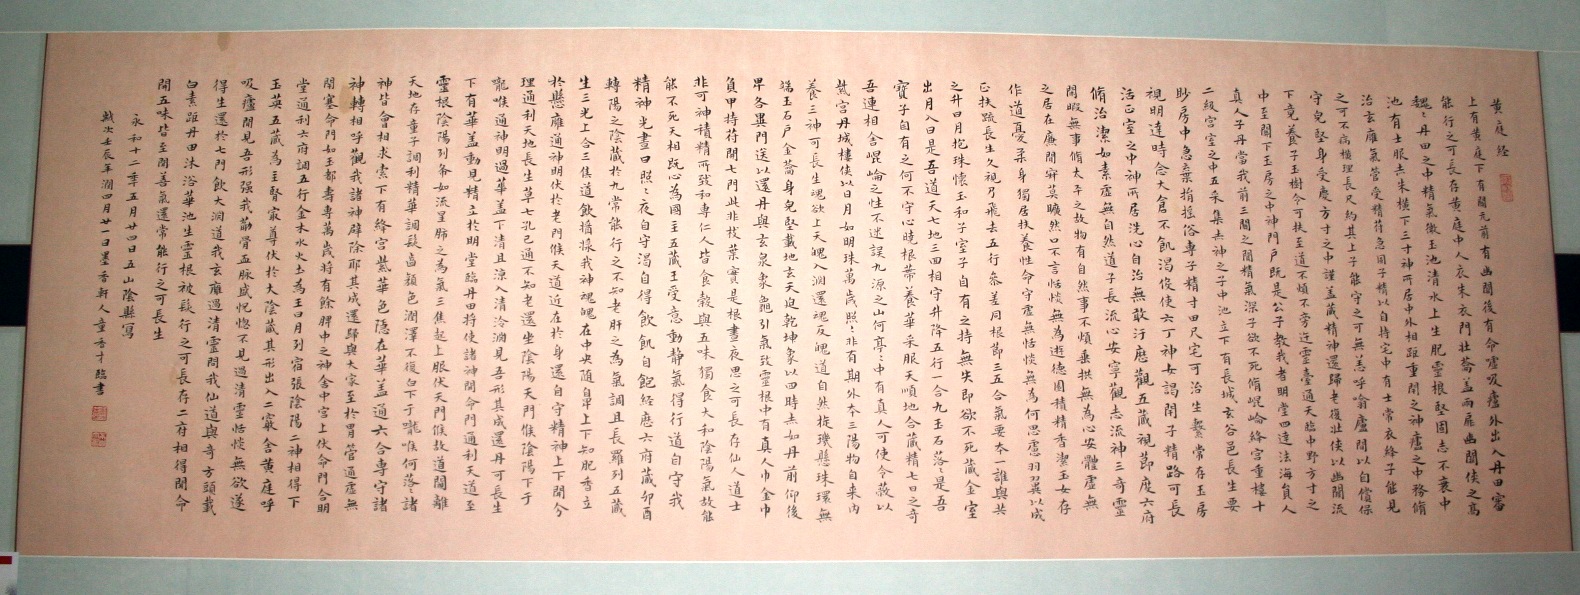 黃庭經
上有黃庭下有關元前有幽闕後有命廬吸廬外出入丹田審
能行之可長存黃庭中人衣朱衣關門壯蘥蓋兩扉幽闕俠之高
巍〻丹田之中精氣微玉池清水上生肥靈根堅固志不衰中
池有士服赤朱橫下三寸神所居中外相距重閉之神廬之中務脩
治玄廱氣管受精符急固子精以自持宅中有士常衣絳子能見
之可不病橫理長尺約其上子能守之可無恙呼噏廬間以自償保
守兒堅身受慶方寸之中謹蓋藏精神還歸老復壯俠以幽闕流
下竟養子玉樹令可扶至道不煩不旁迕靈臺通天臨中野方寸之
中至關下玉房之中神門戶既是公子教我者明堂四達法海員人
真人子丹當我前三關之間精氣深子欲不死脩崐崘絳宮重樓十
二級宮室之中五采集赤神之子中池立下有長城玄谷邑長生要
眇房中急棄捐搖俗專子精寸田尺宅可治生繫常存玉房
視明達時念大倉不飢渴役使六丁神女謁閉子精路可長
活正室之中神所居洗心自治無敢汙歷觀五藏視節度六府
脩治潔如素虛無自然道子長流心安寧觀志流神三奇靈
閑暇無事脩太平之故物有自然事不煩垂拱無為心安體虛無
之居在廉間寂莫曠然口不言恬惔無為遊德園積精香潔玉女存
作道憂柔身獨居扶養性命守虛無恬惔無為何思慮羽翼以成
正扶疏長生久視乃飛去五行參差同根節三五合氣要本一誰與共
之升日月抱珠懷玉和子室子自有之持無失即欲不死藏金室
出月入日是吾道天七地三回相守升降五行一合九玉石落〻是吾
寶子自有之何不守心曉根蔕養華采服天順地合藏精七日之奇
吾連相舍崐崘之性不迷誤九源之山何亭〻中有真人可使令蔽以
紫宮丹城樓俠以日月如明珠萬歲照〻非有期外本三陽物自來內
養三神可長生魂欲上天魄入淵還魂反魄道自然旋璣懸珠環無
端玉石戶金籥身兒堅載地玄天迫乾坤象以四時赤如丹前仰後
卑各異門送以還丹與玄泉象龜引氣致靈根中有真人巾金巾
負甲持符開七門此非枝葉實是根晝夜思之可長存仙人道士
非可神積精所致和專仁人皆食穀與五味獨食大和陰陽氣故能
能不死天相既心為國主五藏王受意動靜氣得行道自守我
精神光晝日照〻夜自守渴自得飲飢自飽經歷六府藏卯酉
轉陽之陰藏於九常能行之不知老肝之為氣調且長羅列五藏
生三光上合三焦道飲醬漿我神魂魄在中央隨鼻上下知肥香立
於懸廱通神明伏於老門候天道近在於身還自守精神上下開分
理通利天地長生草七孔已通不知老還坐陰陽天門候陰陽下于
嚨喉通神明過華蓋下清且涼入清泠淵見吾形其成還丹可長生
下有華蓋動見精立於明堂臨丹田將使諸神開命門通利天道至
靈根陰陽列布如流星肺之為氣三焦起上服伏天門候故道闚離
天地存童子調利精華調髮齒顏色潤澤不復白下于嚨喉何落〻諸
神皆會相求索下有絳宮紫華色隱在華蓋通六合專守諸
神轉相呼觀我諸神辟除耶其成還歸與大家至於胃管通虛無
閉塞命門如玉都壽專萬歲將有餘脾中之神舍中宮上伏命門合明
堂通利六府調五行金木水火土為王日月列宿張陰陽二神相得下
玉英五藏為主腎最尊伏於大陰藏其形出入二竅舍黃庭呼
吸廬間見吾形強我筋骨血脈盛怳惚不見過清靈恬惔無欲遂
得生還於七門飲大淵道我玄廱過清靈問我仙道與奇方頭載
白素距丹田沐浴華池生靈根被髮行之可長存二府相得開命
開五味皆至開善氣還常能行之可長生
永和十二年五月廿四日五山陰縣寫
歲次壬辰年閏四月廿一日墨香軒人童香才臨書